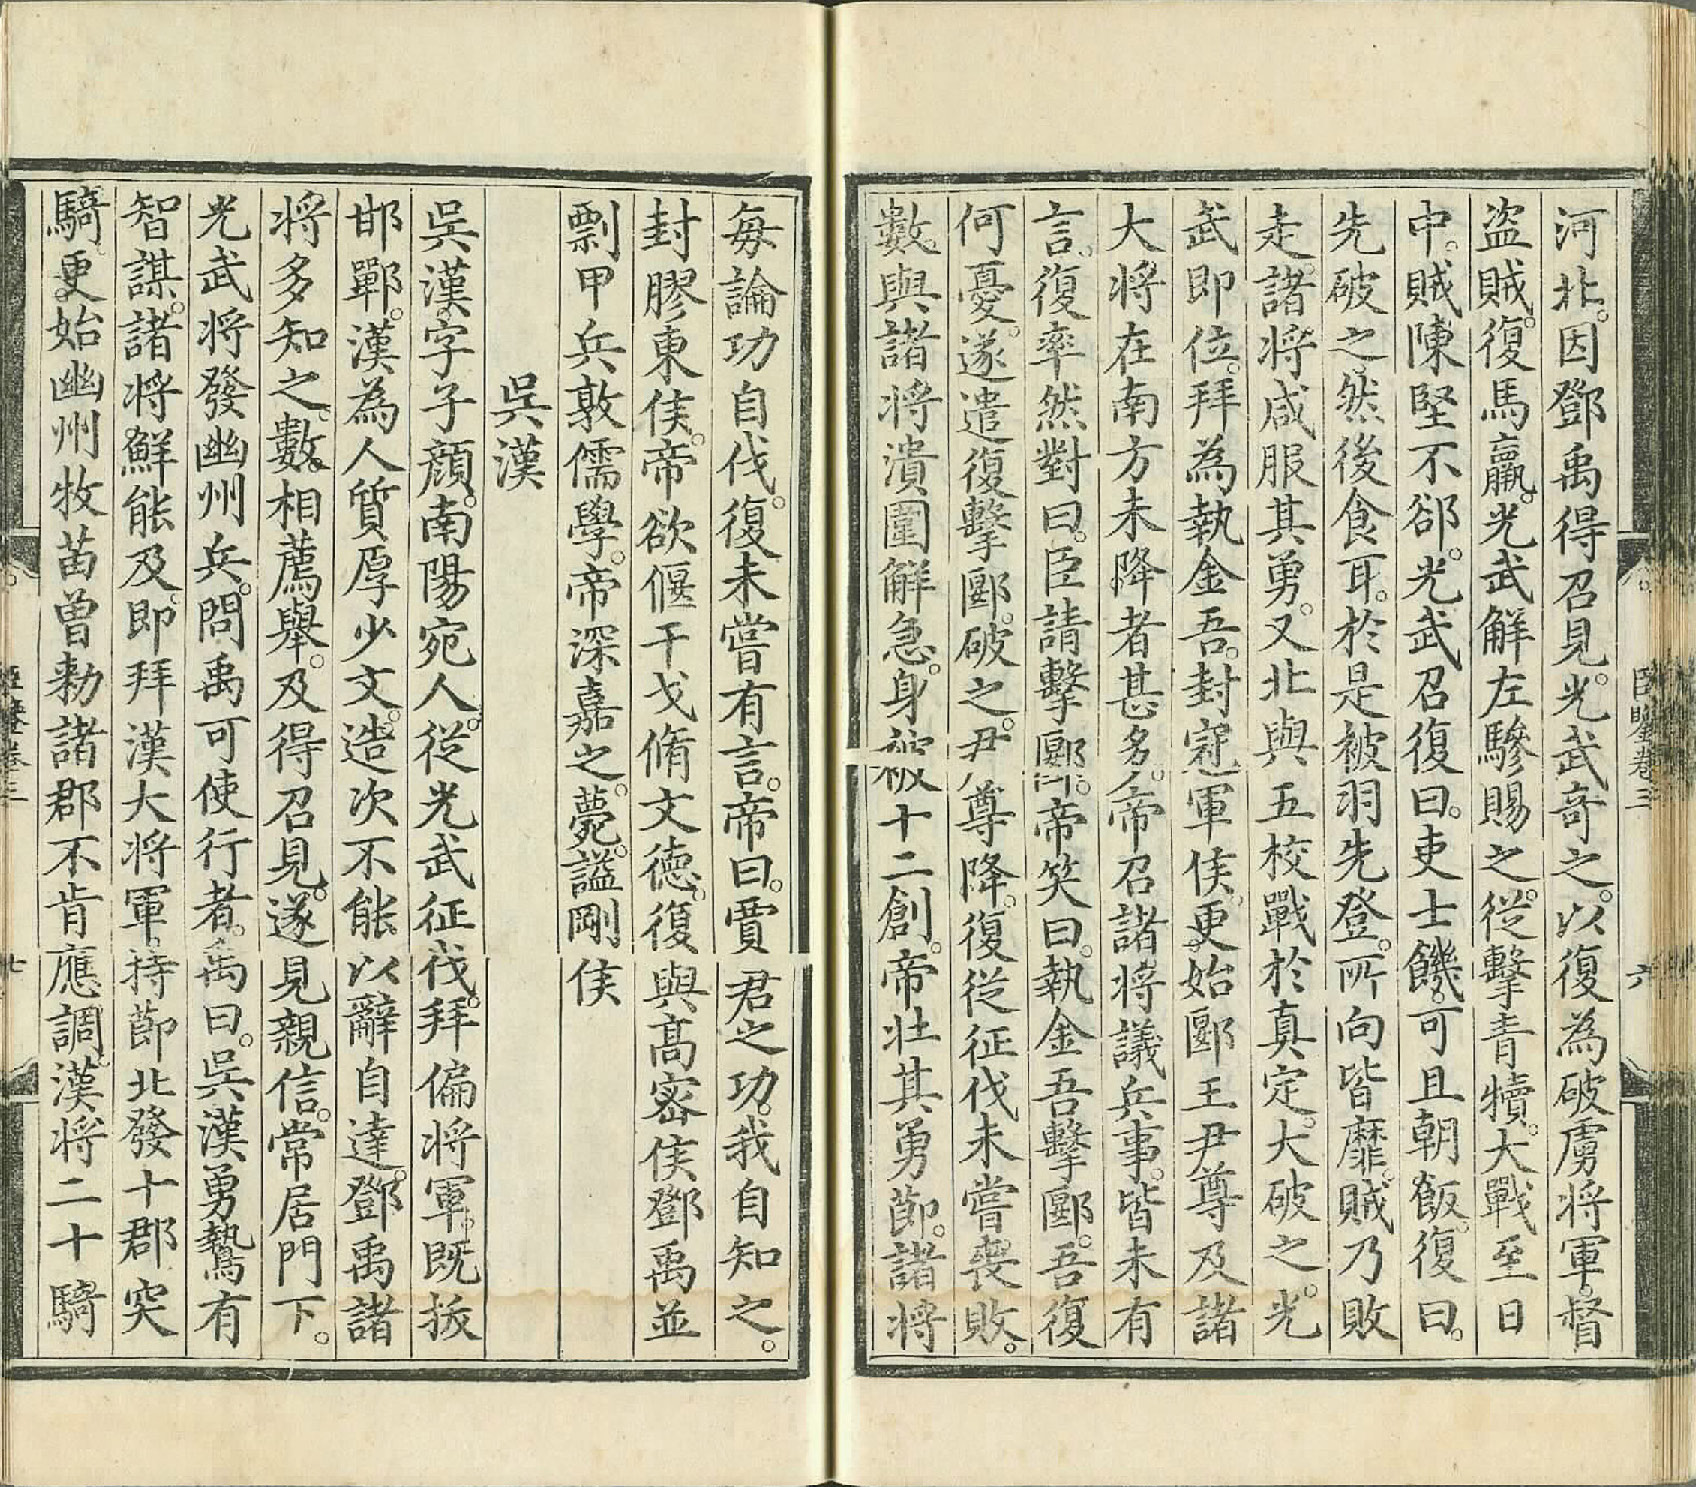 河北。因鄧禹得召見。光武奇之。以復為破虜将軍。督
盗賊。復馬羸。光武解左驂賜之。從擊青犢。大戰至日
中。賊陳堅不郤。光武召復曰。吏士饑。可且朝飯。復曰。
先破之。然後食耳。於是被羽先登。所向皆靡。賊乃敗
走。諸将咸服其勇。又北與五校戰於真定。大破之。光
武即位。拜為執金吾。封冠軍侯。更始郾王尹尊及諸
大将在南方未降者甚多。帝召諸将議兵事。皆未有
言。復率然對曰。臣請擊郾。帝笑曰。執金吾擊郾。吾復
何憂。遂遣復擊郾。破之。尹尊降。復從征伐未嘗喪敗。
數與諸将潰圍解急。身被十二創。帝壯其勇節。諸将
每論功自伐。復未嘗有言。帝曰。賈君之功。我自知之。
封膠東侯。帝欲偃干戈脩文德。復與高密侯鄧禹並
剽甲兵敦儒學。帝深嘉之。薨。謚剛侯
吳漢
吳漢字子顔。南陽宛人。從光武征伐。拜偏将軍。既拔
邯鄲。漢為人質厚少文。造次不能以辭自達。鄧禹諸
将多知之。數相薦舉。及得召見。遂見親信。常居門下。
光武将發幽州兵。問禹可使行者。禹曰。吳漢勇鷙有
智謀。諸将鮮能及。即拜漢大将軍。持節北發十郡突
騎。更始幽州牧苗曾勑諸郡不肯應調。漢将二十騎
卷三
六
七